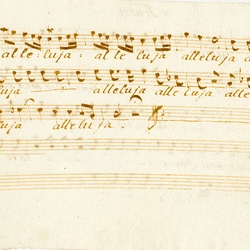 alle: luja. alle luja alleluja a
uja alleluja alle luja alle
uja alleluja.